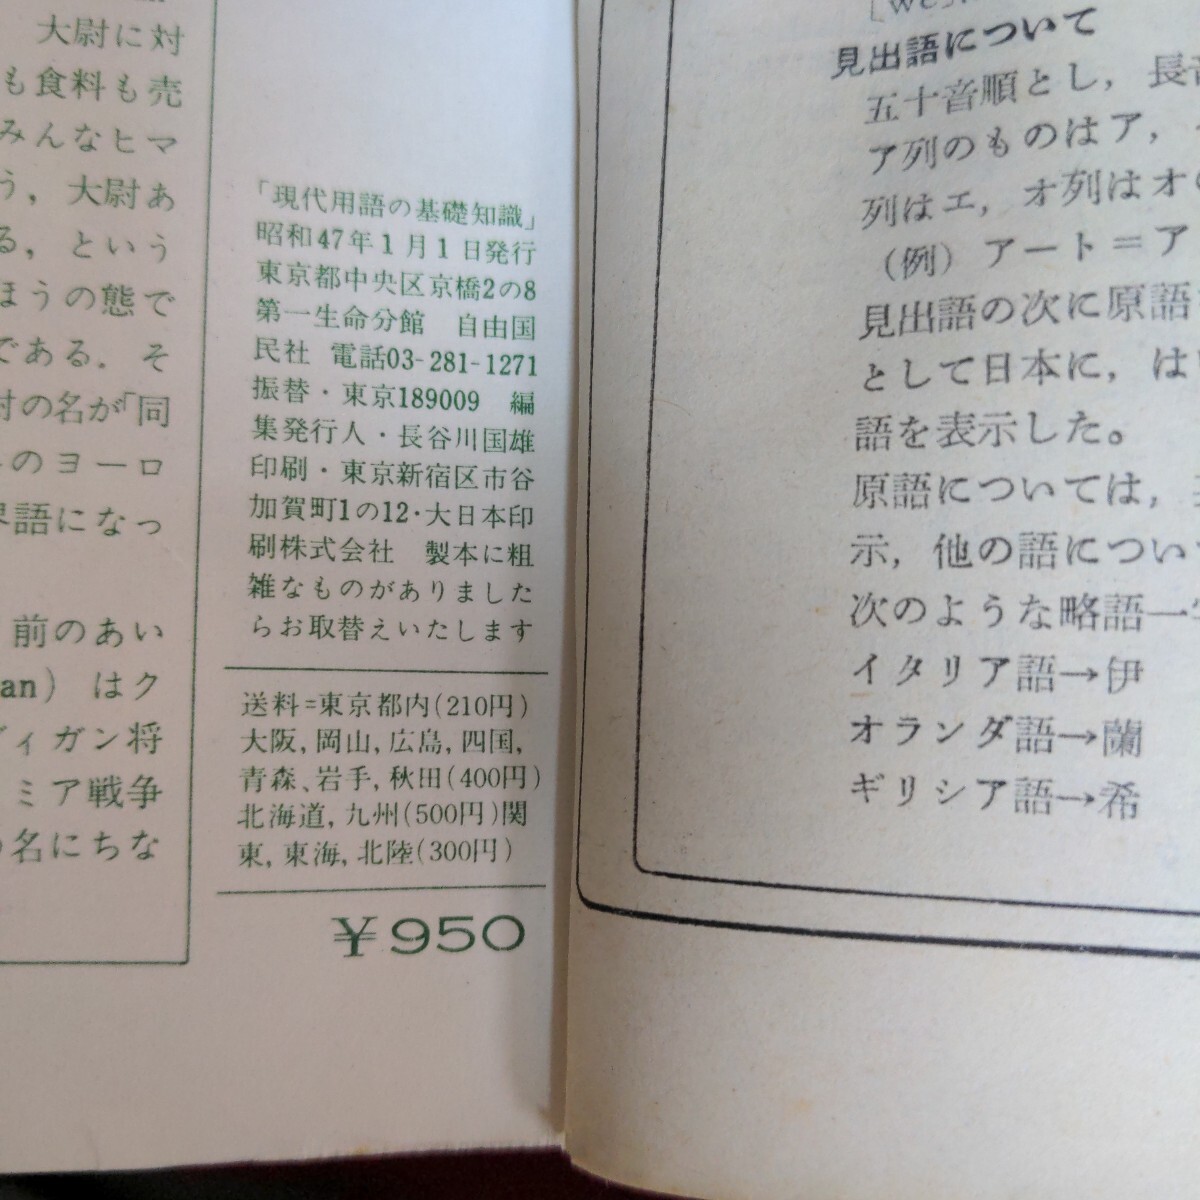 大尉に対
も食料も売
みんなヒマ
う，大尉あ
る，という
ほうの態で
である．そ
村の名が「同
のヨーロ
語になっ
前のあい
an）はク
ィガン将
ミア戦争
名にちな
「現代用語の基礎知識」
昭和47年1月1日発行
東京都中央区京橋2の8
第一生命分館　自由国
民社　電話03-281-1271
振替・東京189009　編
集発行人・長谷川国雄
印刷・東京新宿区市谷
加賀町1の12・大日本印
刷株式会社　製本に粗
雑なものがありました
らお取替えいたします
送料=東京都内(210円)
大阪,岡山,広島,四国,
青森、岩手,秋田(400円)
北海道,九州(500円)関
東,東海,北陸(300円)
￥950
見出語について
五十音順とし，長音
ア列のものはア，
列はエ，オ列はオ
（例）アート＝ア
見出語の次に原語
として日本に，は
語を表示した。
原語については，
示，他の語につい
次のような略語一
イタリア語→伊
オランダ語→蘭
ギリシア語→希